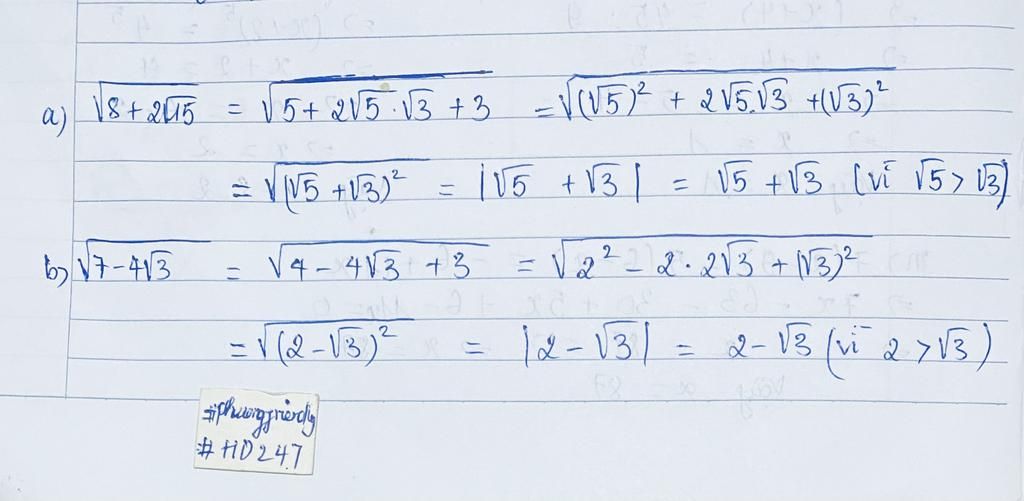 a) √(8 + 2√15) = √(5 + 2√5 · √3 + 3) = √((√5)² + 2√5.√3 + (√3)²)
= √((√5 + √3)²) = |√5 + √3| = √5 + √3 (vì √5 > √3)
b) √(7 - 4√3) = √(4 - 4√3 + 3) = √(2² - 2 · 2√3 + (√3)²)
= √((2 - √3)²) = |2 - √3| = 2 - √3 (vì 2 > √3)
#phuongfriendly
#HD247